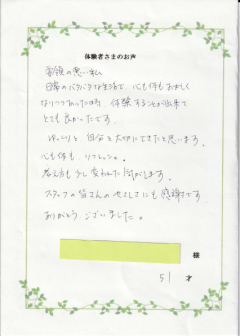 体験者さまのお声
要領の悪い私
日常のバタバタな生活で、心も体もおかしく
なりつつあった時、体験することが出来て
とても良かったです。
ゆっくりと自分を大切にできたと思います。
心も体も、リフレッシュ。
考え方も少し変われた気がします。
スタッフの皆さんのやさしさにも感謝です。
ありがとうございました。
様
51 才